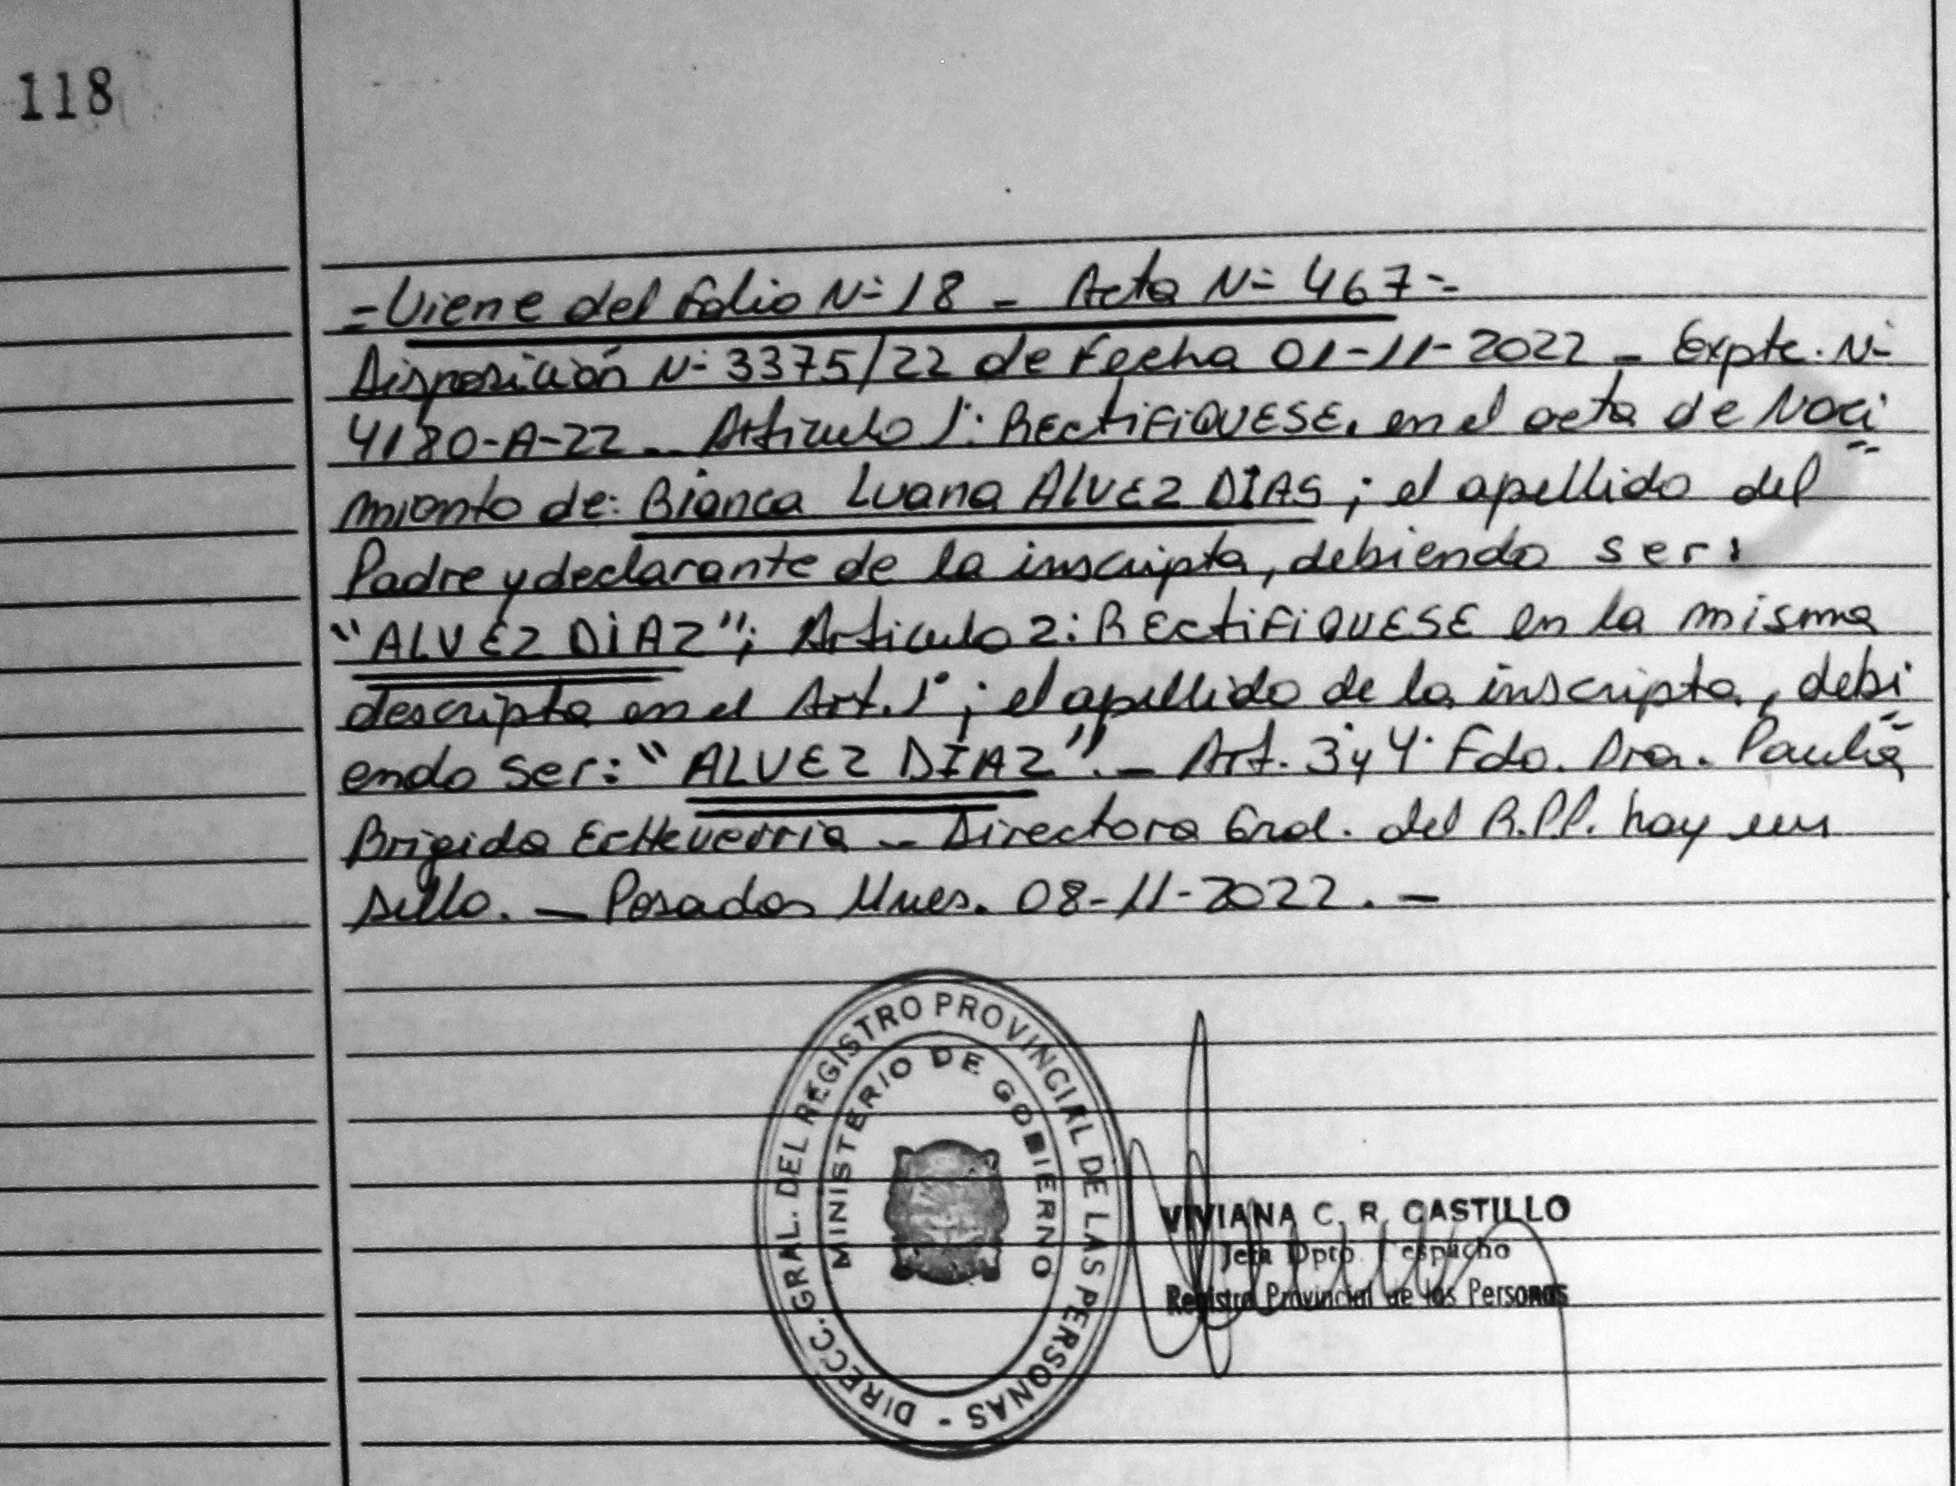 118
=Viene del folio Nº 18 - Acta Nº 467=
Disposición Nº 3375/22 de fecha 01-11-2022 - Expte. Nº
4180-A-22 - Artículo 1º: RECTIFIQUESE, en el acta de Naci
miento de: Bianca Luana ALVEZ DIAS; el apellido del
Padre y declarante de la inscripta, debiendo ser:
"ALVEZ DÍAZ"; Artículo 2: RECTIFIQUESE en la misma
descripta en el Art. 1º; el apellido de la inscripta, debi
endo ser: "ALVEZ DÍAZ". - Art. 3º y 4º Fdo. Dra. Paula
Brigida Echeverria - Directora Gral. del R.P.P. hay un
sello. - Posadas Mnes. 08-11-2022. -
DIRECC. GRAL. DEL REGISTRO PROVINCIAL DE LAS PERSONAS -
MINISTERIO DE GOBIERNO
VIVIANA C. R. CASTILLO
Jefa Dpto. Despacho
Registro Provincial de las Personas